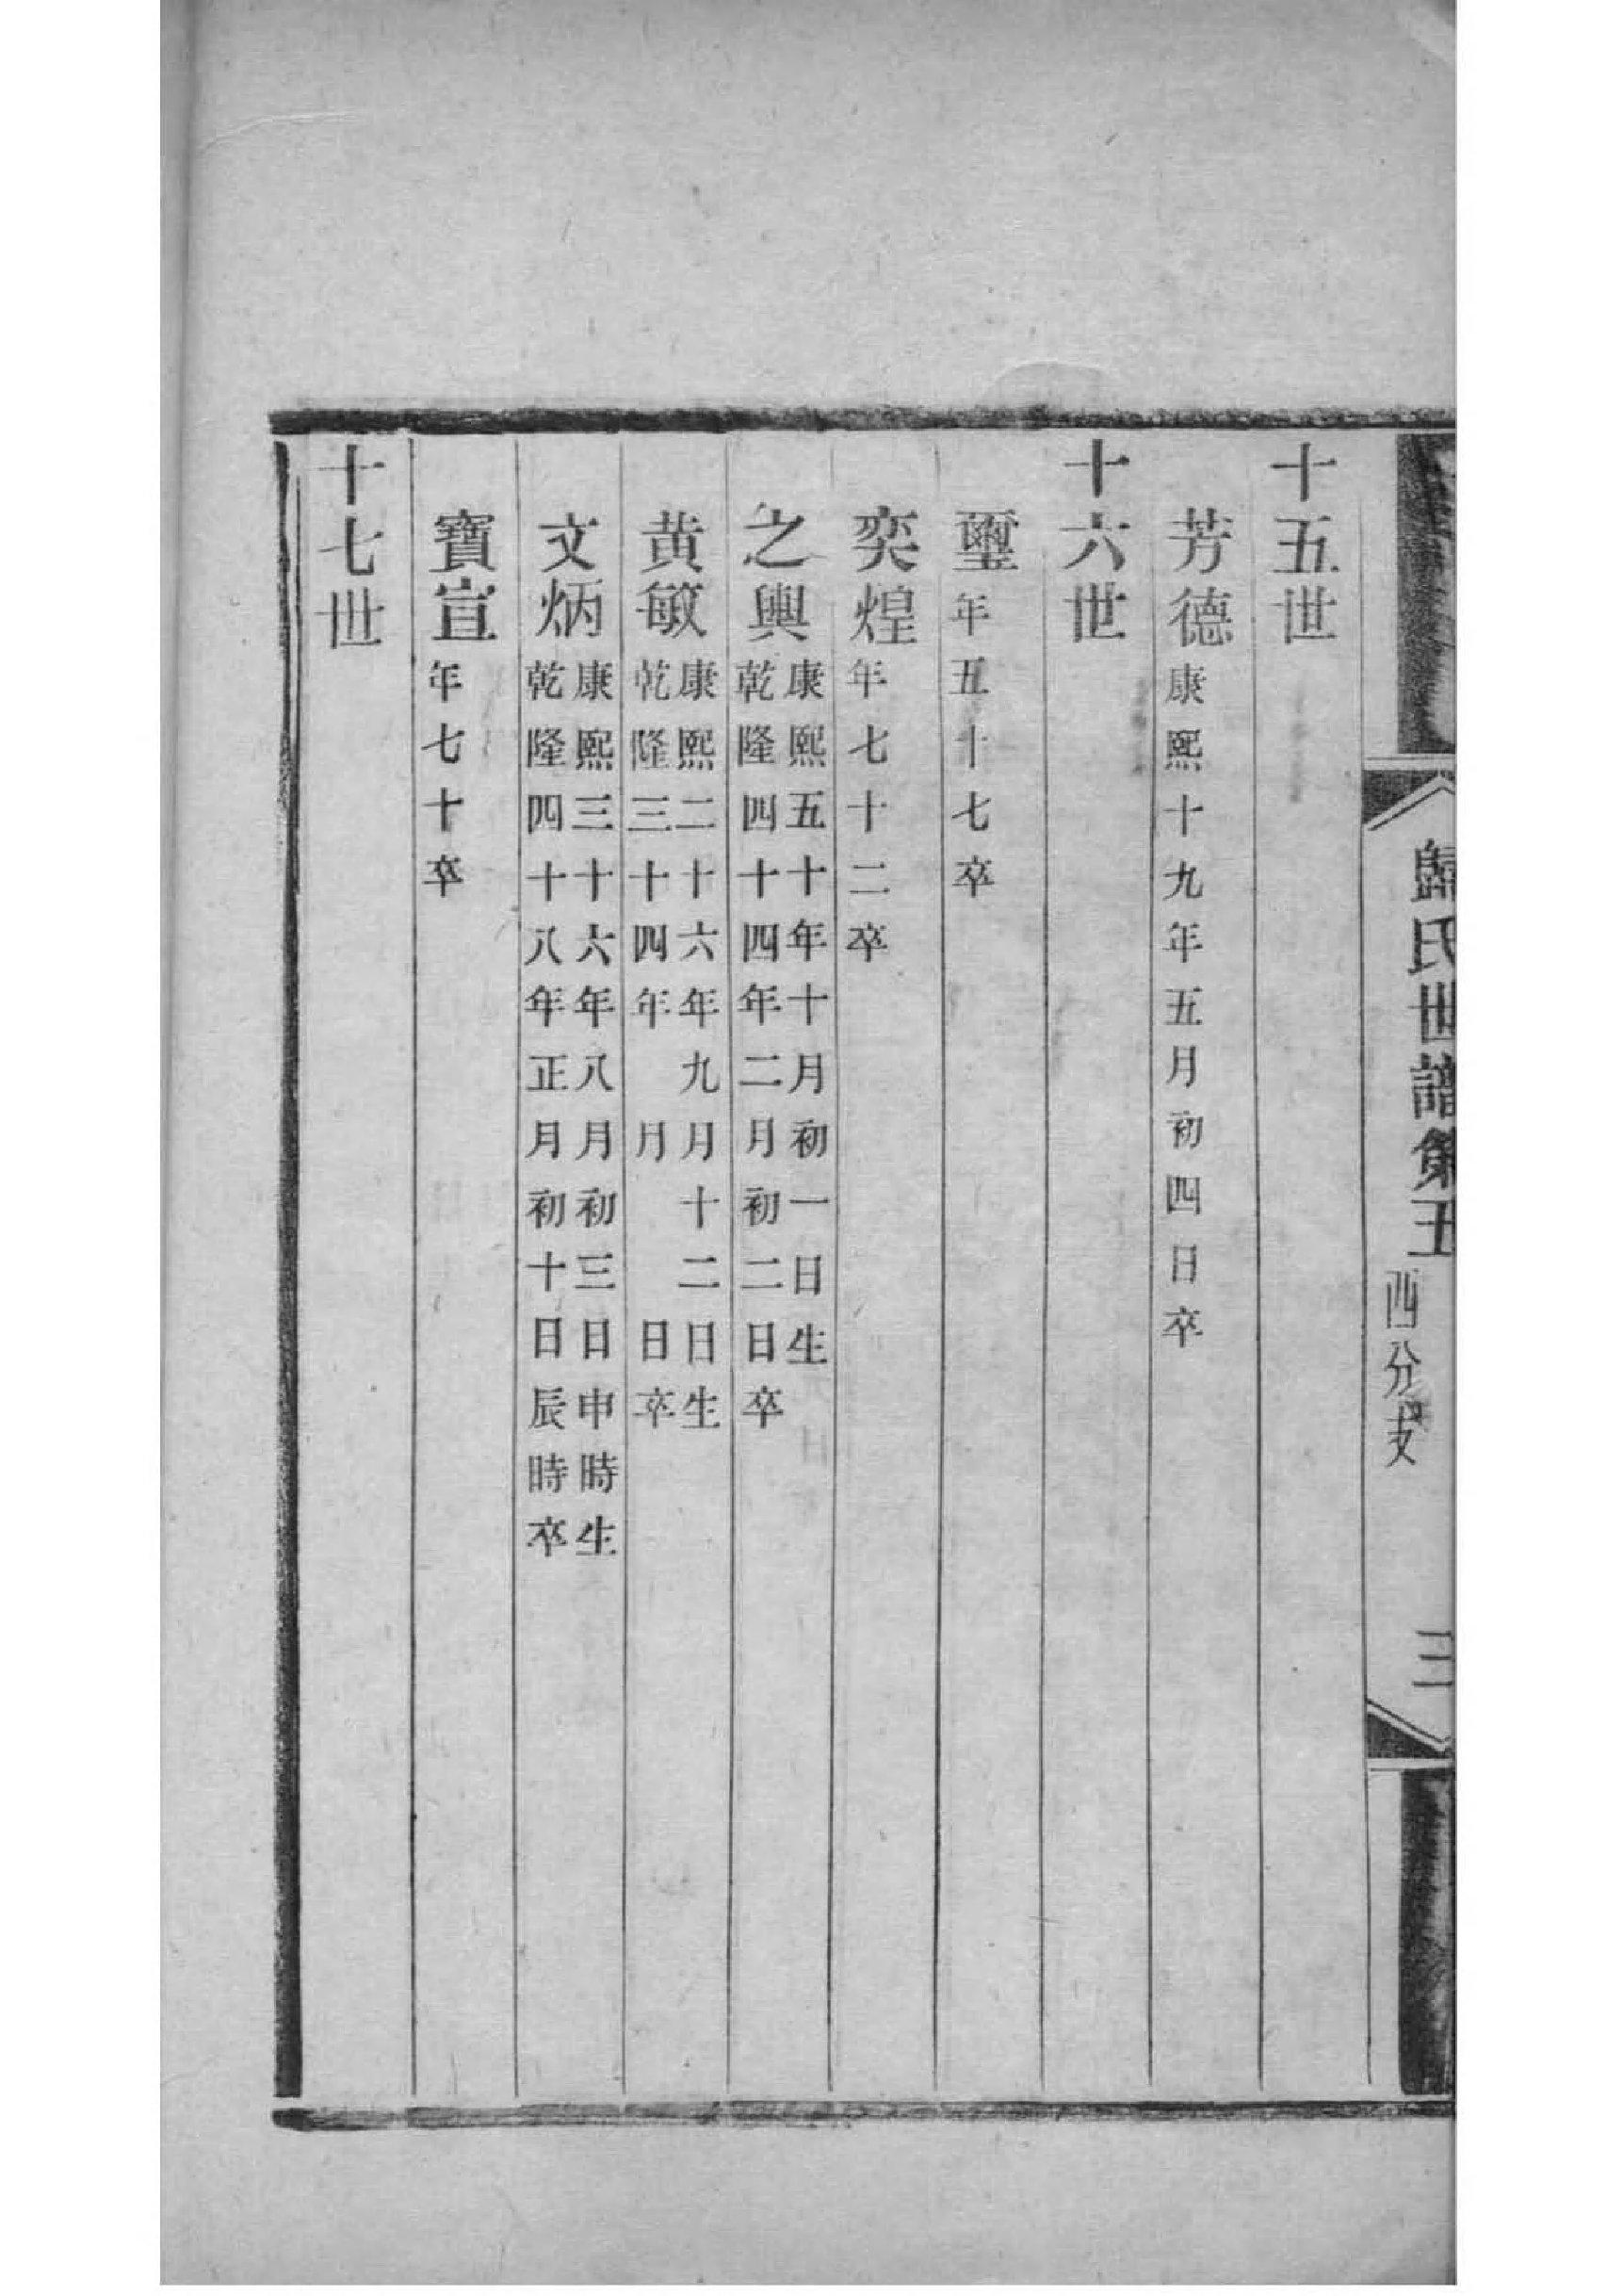 歸氏世譜第五 四分支 三
十五世
芳德 康熙十九年五月初四日卒
十六世
璽 年五十七卒
奕煌 年七十二卒
之輿 康熙五十年十月初一日生
乾隆四十四年二月初二日卒
黄敏 康熙二十六年九月十二日生
乾隆三十四年 月 日卒
文炳 康熙三十六年八月初三日申時生
乾隆四十八年正月初十日辰時卒
寶宣 年七十卒
十七世